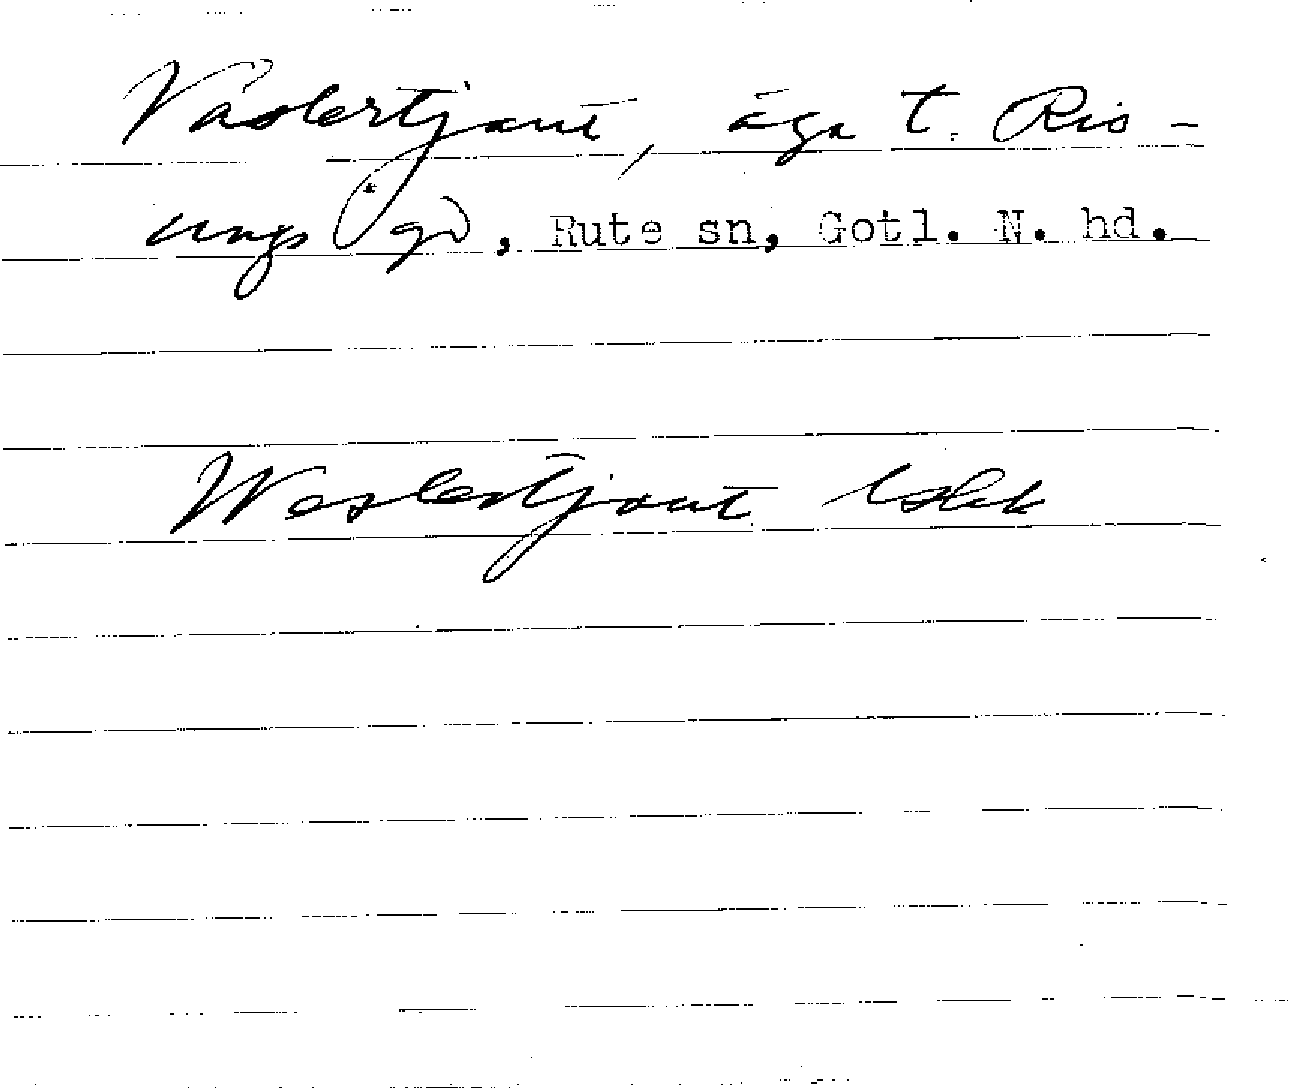 Västertjaut, äga t. Ris-
ungs gd, Rute sn, Gotl. N. hd.
Westertjaut